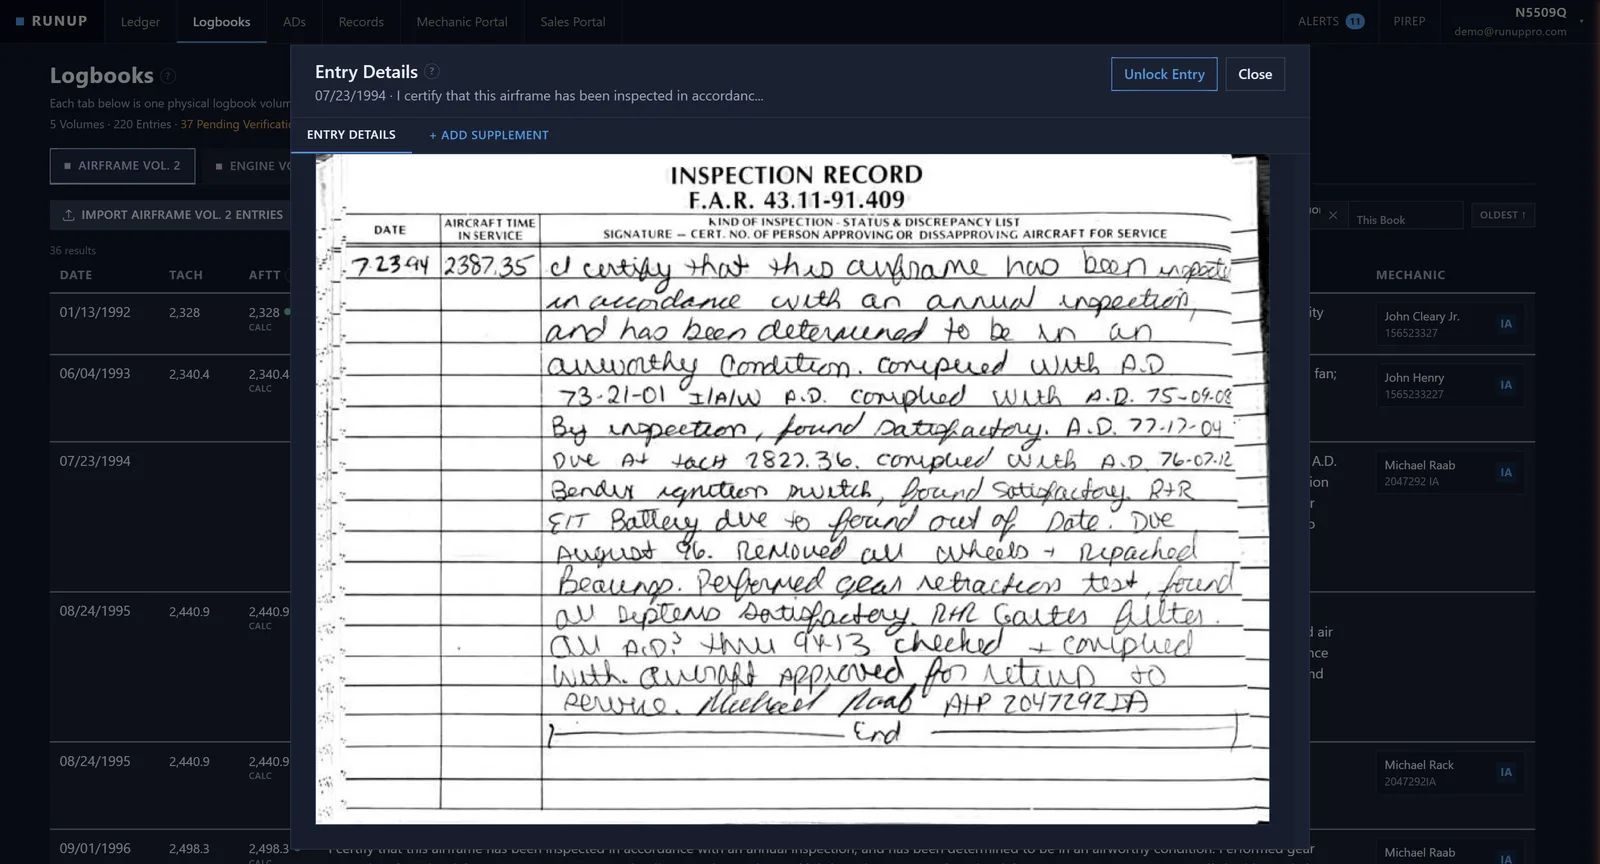 RUNUP
Ledger
Logbooks
ADs
Records
Mechanic Portal
Sales Portal
ALERTS 11
PIREP
N5509Q
demo@runuppro.com
Logbooks ?
Each tab below is one physical logbook volum
5 Volumes · 220 Entries · 37 Pending Verificatio
AIRFRAME VOL. 2
ENGINE VO
IMPORT AIRFRAME VOL. 2 ENTRIES
This Book
OLDEST ↑
36 results
DATE TACH AFTT MECHANIC
01/13/1992 2,328 2,328
CALC
ity
John Cleary Jr.
156523327
IA
06/04/1993 2,340.4 2,340.4
CALC
fan;
John Henry
1565233227
IA
07/23/1994
A.D.
ion
r
Michael Raab
2047292 IA
IA
08/24/1995 2,440.9 2,440.9
CALC
d air
nce
nd
08/24/1995 2,440.9 2,440.9
CALC
Michael Rack
2047292IA
IA
09/01/1996 2,498.3 2,498.3
I certify that this airframe has been inspected in accordance with an annual inspection, and has been determined to be in an airworthy condition. Performed gear
Michael Raab
IA
Entry Details ?
07/23/1994 · I certify that this airframe has been inspected in accordanc...
Unlock Entry
Close
ENTRY DETAILS
+ ADD SUPPLEMENT
INSPECTION RECORD
F.A.R. 43.11-91.409
DATE
AIRCRAFT TIME
IN SERVICE
KIND OF INSPECTION - STATUS & DISCREPANCY LIST
SIGNATURE — CERT. NO. OF PERSON APPROVING OR DISSAPPROVING AIRCRAFT FOR SERVICE
7-23-94 2387.35 I certify that this airframe has been inspecte
in accordance with an annual inspection,
and has been determined to be in an
airworthy Condition. complied with A.D
73-21-01 I/A/W A.D. complied with A.D. 75-09-08
By inspection, found Satisfactory. A.D. 77-17-04
Due At tach 2827.36. complied with A.D. 76-07-12
Bendix ignition switch, found satisfactory. R+R
Battery due to found out of Date. Due
August 96. Removed all wheels + repacked
Bearings. Performed gear retraction test, found
all systems satisfactory. R+R filter.
all A.D.s thru 94-13 checked + complied
with. aircraft Approved for return to
service. Michael Raab A+P 2047292IA
End